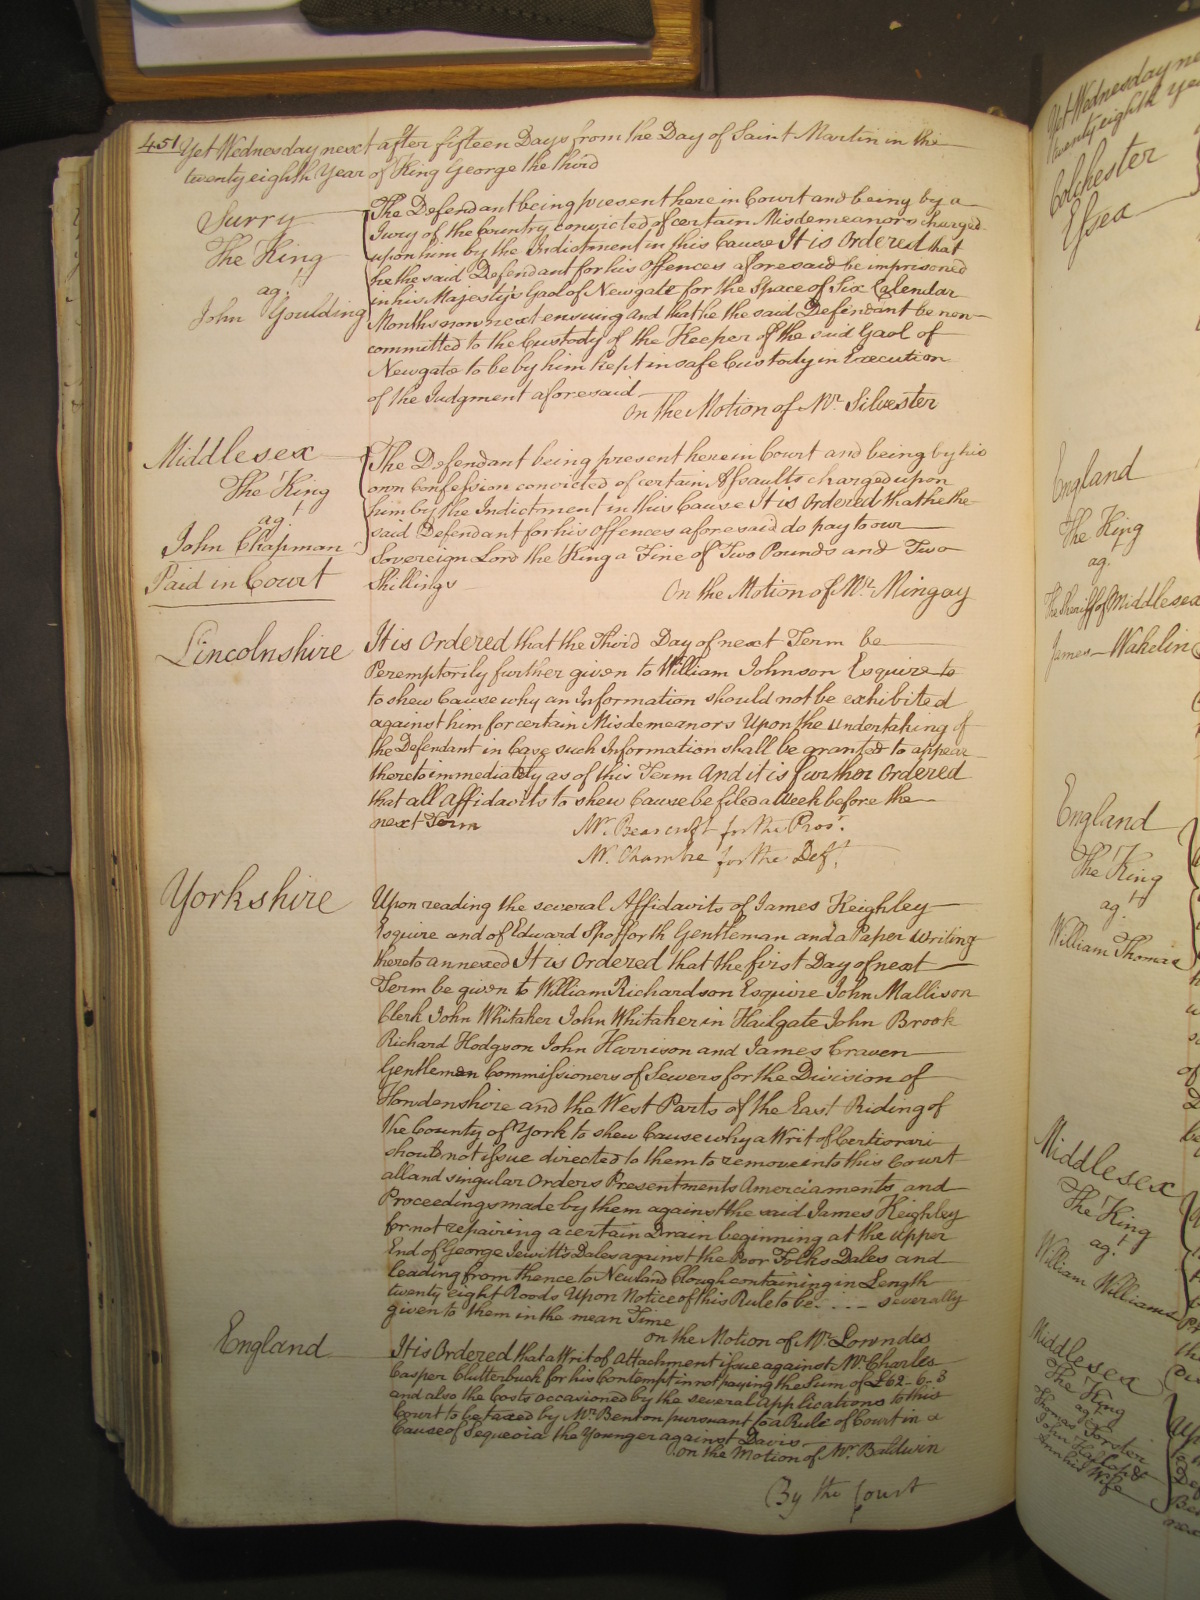 451 Yet Wednesday next after fifteen Days from the Day of Saint Martin in the
twenty eighth Year of King George the third
Surry
The King
agt
John Goulding
The Defendant being present here in Court and being by a
Jury of the Country convicted of certain Misdemeanors charged
upon him by the Indictment in this Cause It is Ordered that
he the said Defendant for his Offences aforesaid be imprisoned
in his Majesty's Gaol of Newgate for the Space of Six Calendar
Months now next ensuing And that he the said Defendant be now
committed to the Custody of the Keeper of the said Gaol of
Newgate to be by him kept in safe Custody in Execution
of the Judgment aforesaid
On the Motion of Mr. Silvester
Middlesex
The King
agt
John Chapman
Paid in Court
The Defendant being present here in Court and being by his
own Confession convicted of certain Assaults charged upon
him by the Indictment in this Cause It is Ordered that he the
said Defendant for his Offences aforesaid do pay to our
Sovereign Lord the King a Fine of Two Pounds and Two
Shillings
On the Motion of Mr. Mingay
Lincolnshire
It is Ordered that the Third Day of next Term be
Peremptorily further given to William Johnson Esquire to
to shew Cause why an Information should not be exhibited
against him for certain Misdemeanors Upon the undertaking of
the Defendant in Case such Information shall be granted to appear
thereto immediately as of this Term And it is further Ordered
that all Affidavits to shew Cause be filed a Week before the
next Term
Mr. Bearcroft for the Prosr.
Mr. Chambre for the Deft.
Yorkshire
Upon reading the several Affidavits of James Keighley
Esquire and of Edward Spofforth Gentleman and a Paper Writing
thereto annexed It is Ordered that the first Day of next
Term be given to William Richardson Esquire John Mallison
Clerk John Whitaker John Whitaker in Hailgate John Brook
Richard Hodgson John Harrison and James Craven
Gentlemen Commissioners of Sewers for the Division of
Howdenshire and the West Parts of the East Riding of
the County of York to shew Cause why a Writ of Certiorari
should not issue directed to them to remove into this Court
all and singular Orders Presentments Amerciaments and
Proceedings made by them against the said James Keighley
for not repairing a certain Drain beginning at the upper
End of George Jewitt's Dales against the Poor Folks Dales and
leading from thence to Newland Clough containing in Length
twenty eight Roods Upon Notice of this Rule to be . . . . severally
given to them in the mean Time
on the Motion of Mr. Lowndes
England
It is Ordered that a Writ of Attachment issue against Mr. Charles
Casper Clutterbuck for his Contempt in not paying the Sum of £62-6-3
and also the Costs occasioned by the several applications to this
Court to be taxed by Mr. Benton pursuant to a Rule of Court in a
Cause of Sequeira the Younger against Davis
on the Motion of Mr. Baldwin
By the Court
Yet Wednesday
twenty eighth Year
Colchester
Essex
England
The King
agt
The Sheriff of Middlesex
James Wakelin
England
The King
agt
William Thomas
Middlesex
The King
agt
William Williams
Middlesex
The King
agt
Thomas Forster
John
Ann his Wife